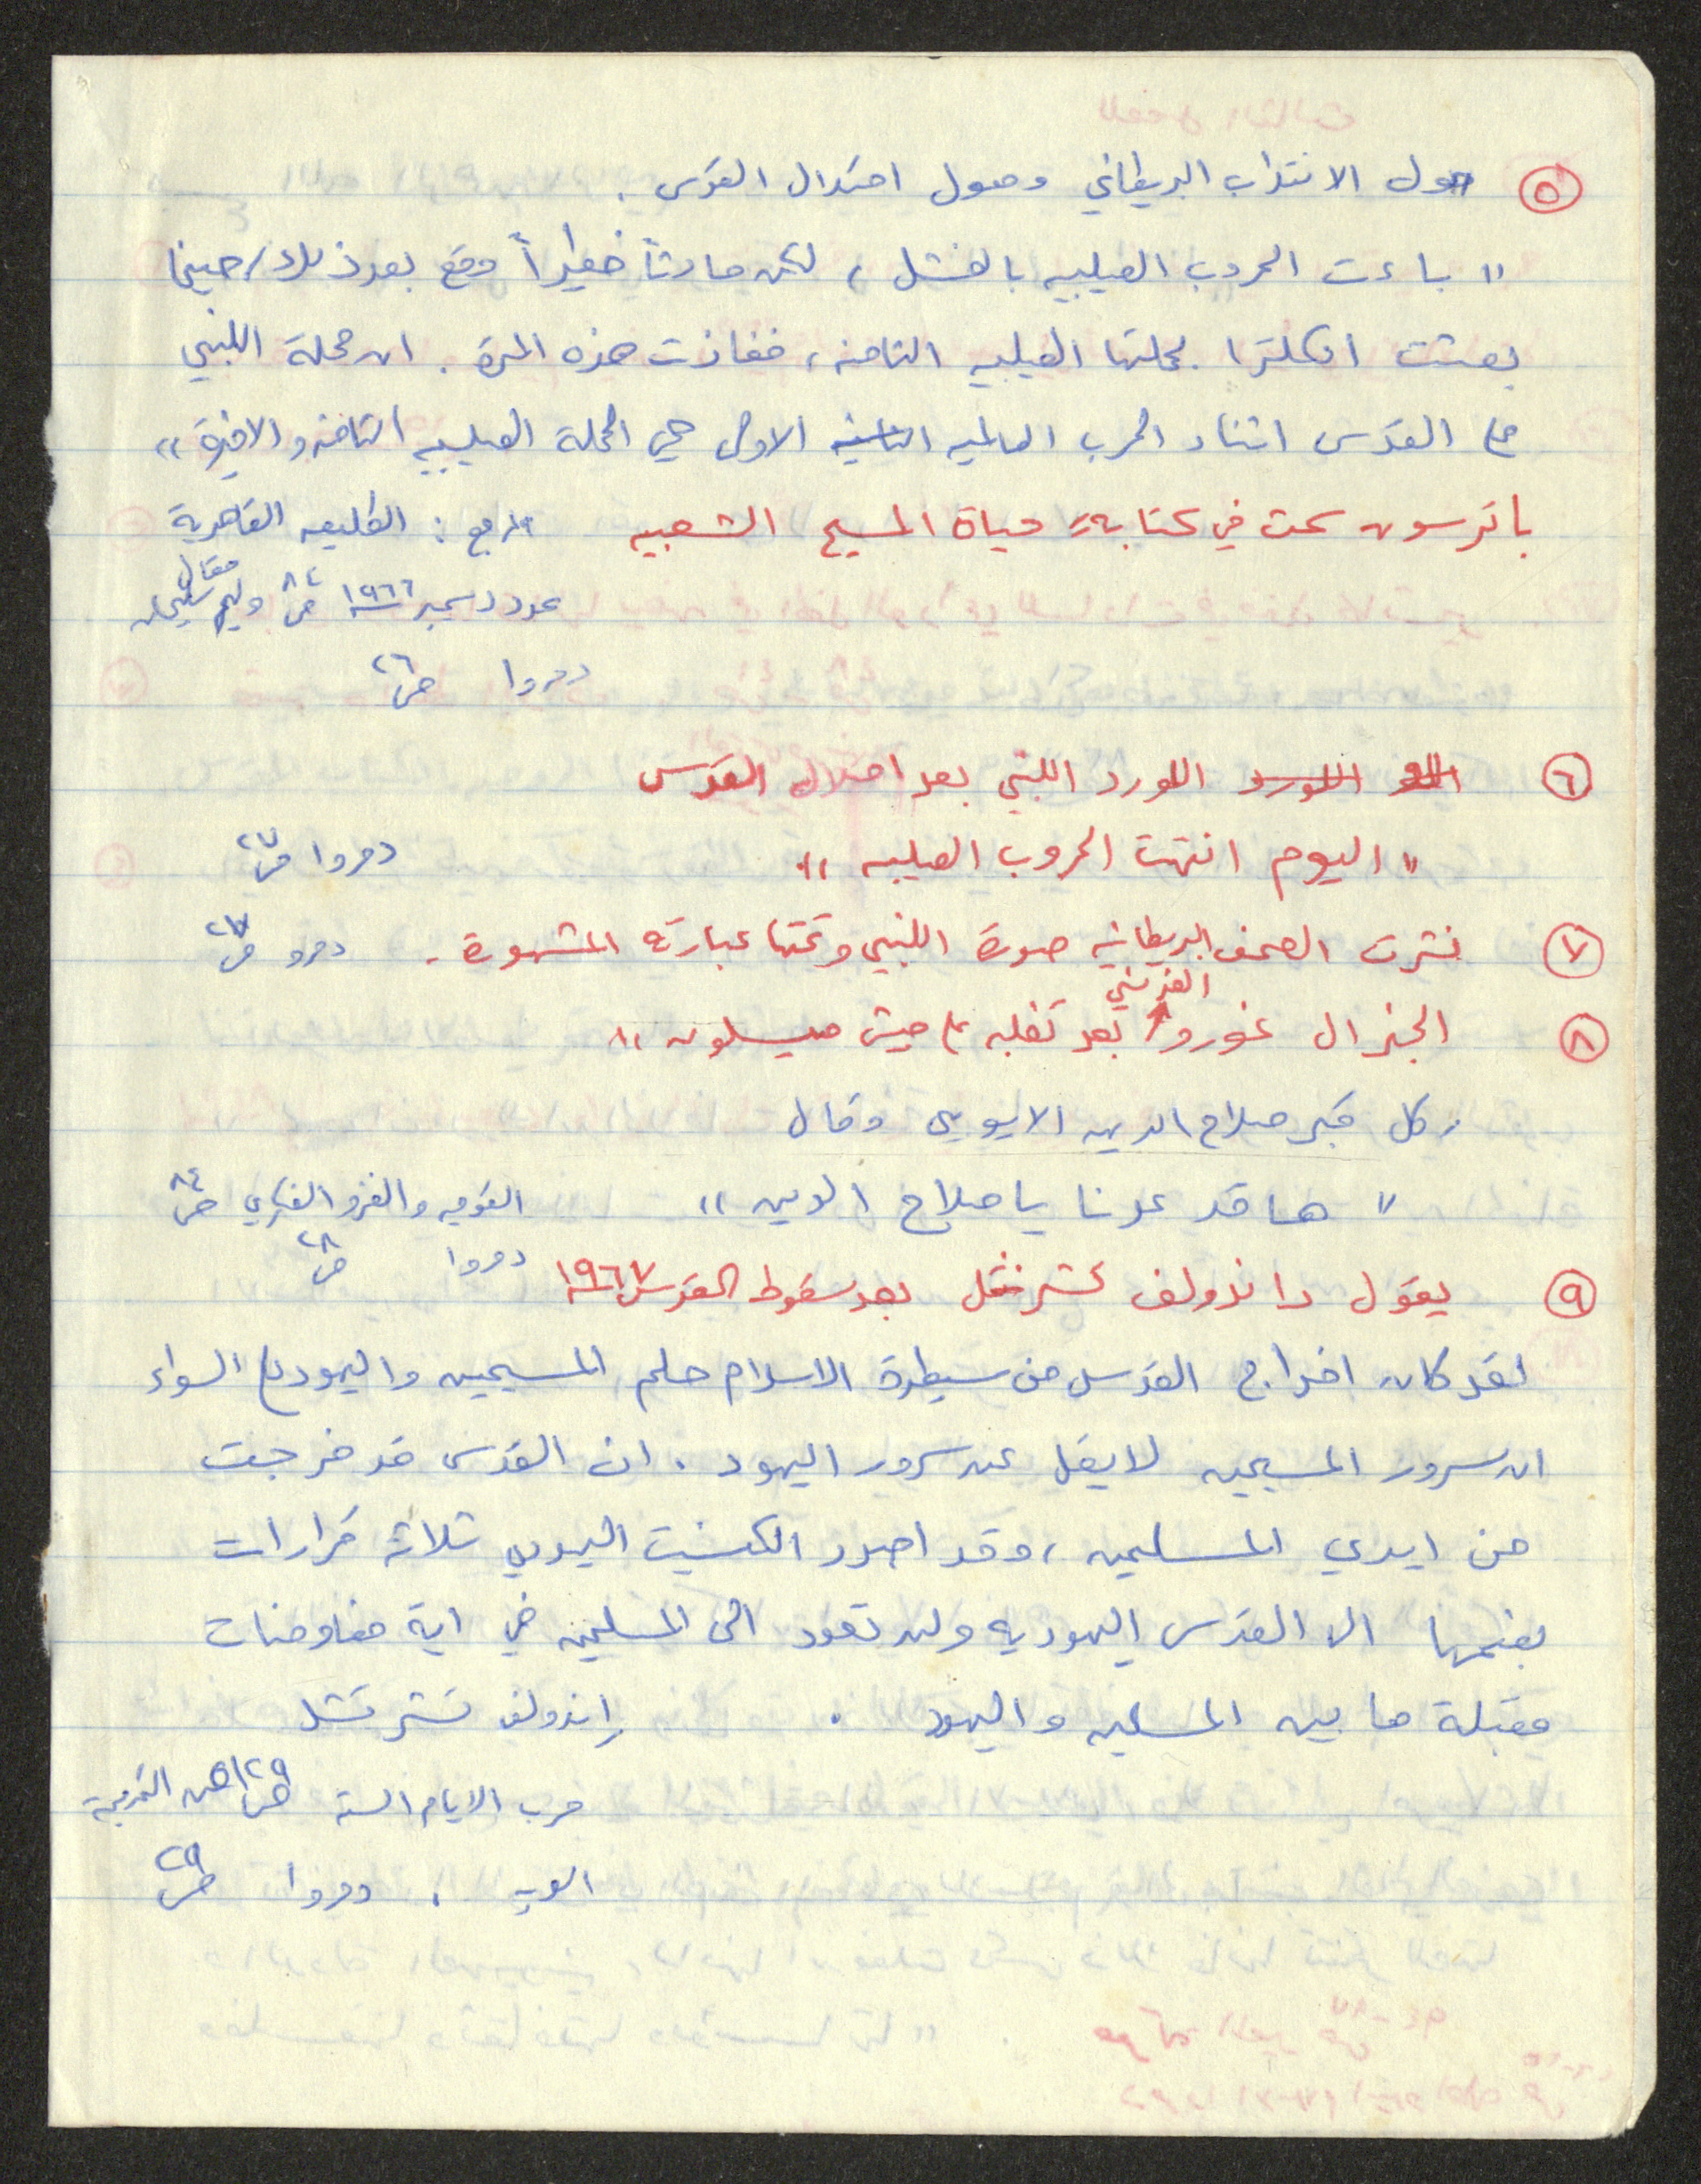 ٥ حول الانتداب البريطاني وحول احتلال القدس .
" باءت الحروب الصليبيه بالفشل ، لكن حادثاً خطيراً وقع بعد ذلك / حينما
بعثت انكلترا بحملتها الصليبيه الثامنه ، ففازت هذه المرة . ان حملة اللنبي
على القدس اثناء الحرب العالميه الثانيه الاولى هي الحملة الصليبيه الثامنه والاخيرة "
باترسون سمث في كتابه " حياة المسيح الشعبيه المرجع : الطليعه القاهرية
عدد دسمبر ١٩٦٦ ص ٨٤ مقال وليم سليمان
دمروا ص ٢٦
٦ اللورد اللورد اللنبي بعد احتلال القدس
" اليوم انتهت الحروب الصليبيه " . دمروا ص ٢٧
٧ نشرت الصحف البريطانيه صورة اللنبي وتحتها عبارته المشهورة . دمرو ص ٢٧
٨ الجنرال غورو الفرنسي بعد تغلبه على جيش ميسلون "
ركل قبر صلاح الدين الايوبي وقال
" ها قد عدنا يا صلاح الدين " القوميه والغزو الفكري ص ٨٤
دمروا ص ٢٨
٩ يقول راندولف تشرتشل بعد سقوط القدس ١٩٦٧
لقد كان اخراج القدس من سيطرة الاسلام حلم المسيحيين واليهود على السواء
ان سرور المسيحيين لا يقل عن سرور اليهود . ان القدس قد خرجت
من ايدي المسلمين ، وقد اصدر الكنيست اليهودي ثلاثة قرارات
بضمها الى القدس اليهوديه ولن تعود الى المسلمين في اية مفاوضات
مقبلة ما بين المسلمين واليهود . راندولف تشرتشل
حرب الايام الستة ص ١٢٩ من الترجمة
العربيه . دمروا ص ٢٩